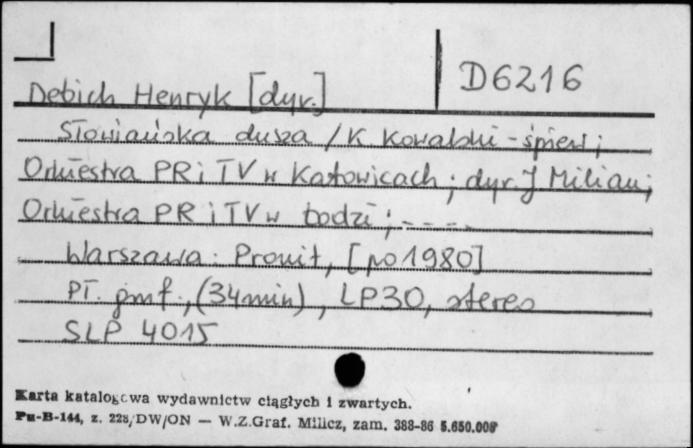 D6216
Debich Henryk [dyr.]
Słowiańska dusza / K. Kowalski - śpiew ;
Orkiestra PR i TV w Katowicach ; dyr. J. Milian ;
Orkiestra PR i TV w Łodzi ; - - - -
Warszawa : Pronit, [po 1980]
Pł. gmf., (34 min), LP30, stereo
SLP 4015
Karta katalogowa wydawnictw ciągłych i zwartych.
Pu-B-144, z. 228/DW/ON — W.Z.Graf. Milicz, zam. 388-86 5.650.000